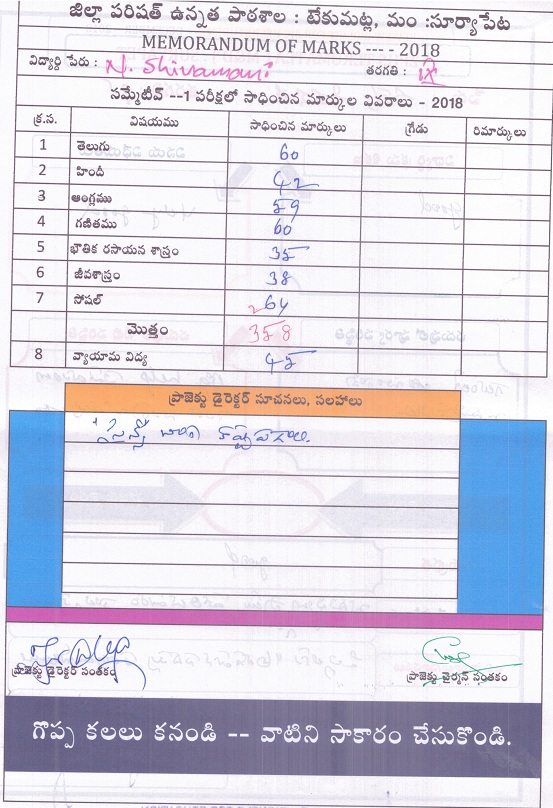 జిల్లా పరిషత్ ఉన్నత పాఠశాల : టేకుమట్ల, మం :సూర్యాపేట
MEMORANDUM OF MARKS ---- - 2018
విద్యార్థి పేరు : N. Shivamani తరగతి : IX
సమ్మేటీవ్ --1 పరీక్షలో సాధించిన మార్కుల వివరాలు - 2018
క్ర.స. విషయము సాధించిన మార్కులు గ్రేడు రిమార్కులు
1 తెలుగు 60
2 హిందీ 42
3 ఆంగ్లము 59
4 గణితము 60
5 భౌతిక రసాయన శాస్త్రం 35
6 జీవశాస్త్రం 38
7 సోషల్ 64
మొత్తం 358
8 వ్యాయామ విద్య 45
ప్రాజెక్టు డైరెక్టర్ సూచనలు, సలహాలు
సైన్స్ బాగా కష్టపడాలి.
ప్రాజెక్టు డైరెక్టర్ సంతకం ప్రాజెక్టు చైర్మన్ సంతకం
గొప్ప కలలు కనండి -- వాటిని సాకారం చేసుకొండి.